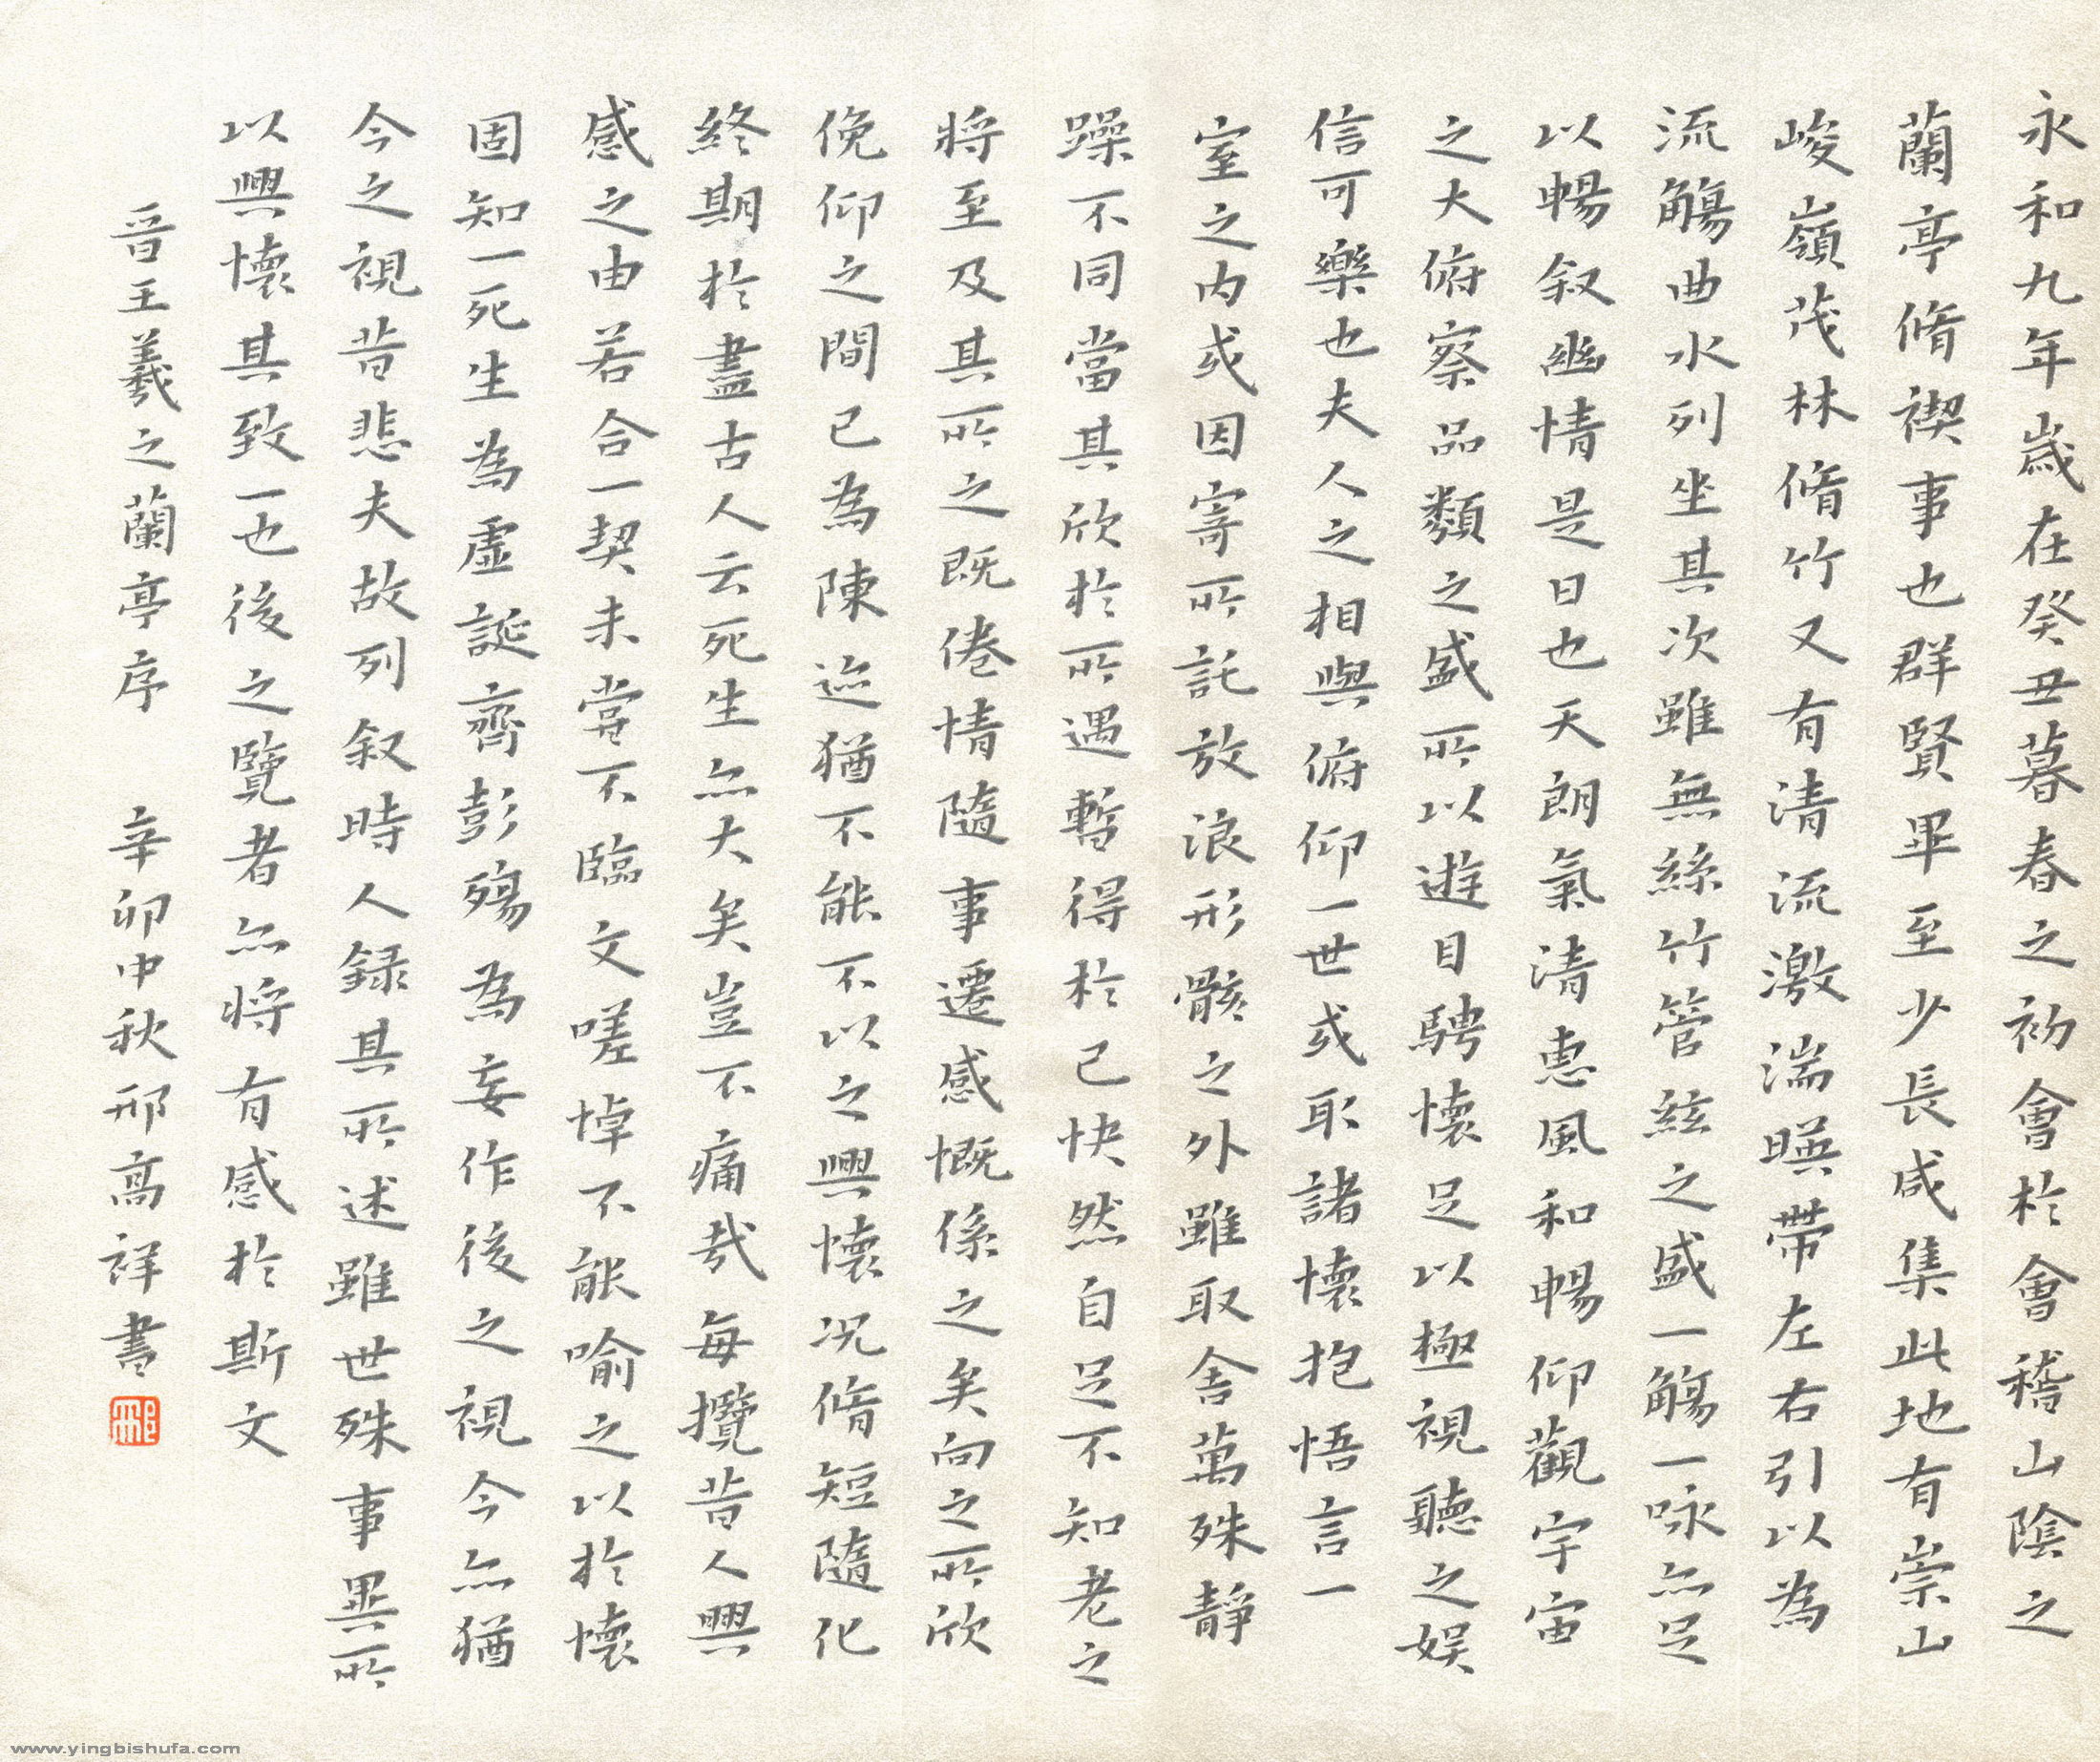 永和九年歲在癸丑暮春之初會於會稽山陰之
蘭亭脩禊事也群賢畢至少長咸集此地有崇山
峻嶺茂林脩竹又有清流激湍暎帶左右引以為
流觴曲水列坐其次雖無絲竹管絃之盛一觴一咏亦足
以暢叙幽情是日也天朗氣清惠風和暢仰觀宇宙
之大俯察品類之盛所以遊目騁懷足以極視聽之娛
信可樂也夫人之相與俯仰一世或取諸懷抱悟言一
室之內或因寄所託放浪形骸之外雖取舍萬殊靜
躁不同當其欣於所遇暫得於己快然自足不知老之
將至及其所之既倦情隨事遷感慨係之矣向之所欣
俛仰之間已為陳迹猶不能不以之興懷況脩短隨化
終期於盡古人云死生亦大矣豈不痛哉每攬昔人興
感之由若合一契未嘗不臨文嗟悼不能喻之以於懷
固知一死生為虛誕齊彭殤為妄作後之視今亦猶
今之視昔悲夫故列叙時人録其所述雖世殊事異所
以興懷其致一也後之覽者亦將有感於斯文
晉王羲之蘭亭序 辛卯中秋邢高祥書
邢
www.yingbishufa.com